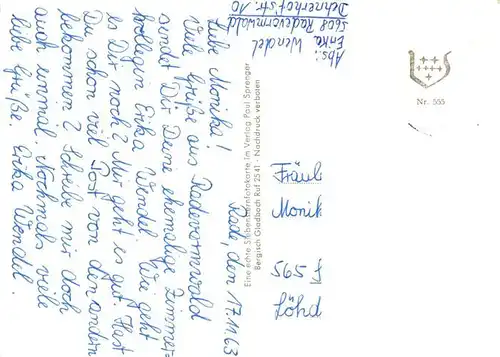 Rade, den 17.11.63
Liebe Monika!
Viele Grüße aus Radevormwald
sendet Dir Deine ehemalige Zimmer=
kollegin Erika Wendel. Wie geht
es Dir noch? Mir geht es gut. Hast
Du schon viel Post von den andern
bekommen? Schreibe mir doch
auch einmal. Nochmals viele
liebe Grüße Erika Wendel.
Abs.: Wendel
Erika
5608 Radevormwald
Dehnerhofstr. 10
Eine echte Siebensternfotokarte im Verlag Paul Sprenger
Bergisch Gladbach Ruf 2541 · Nachdruck verboten
Nr. 555
Fräul
Monik
565
Löhd